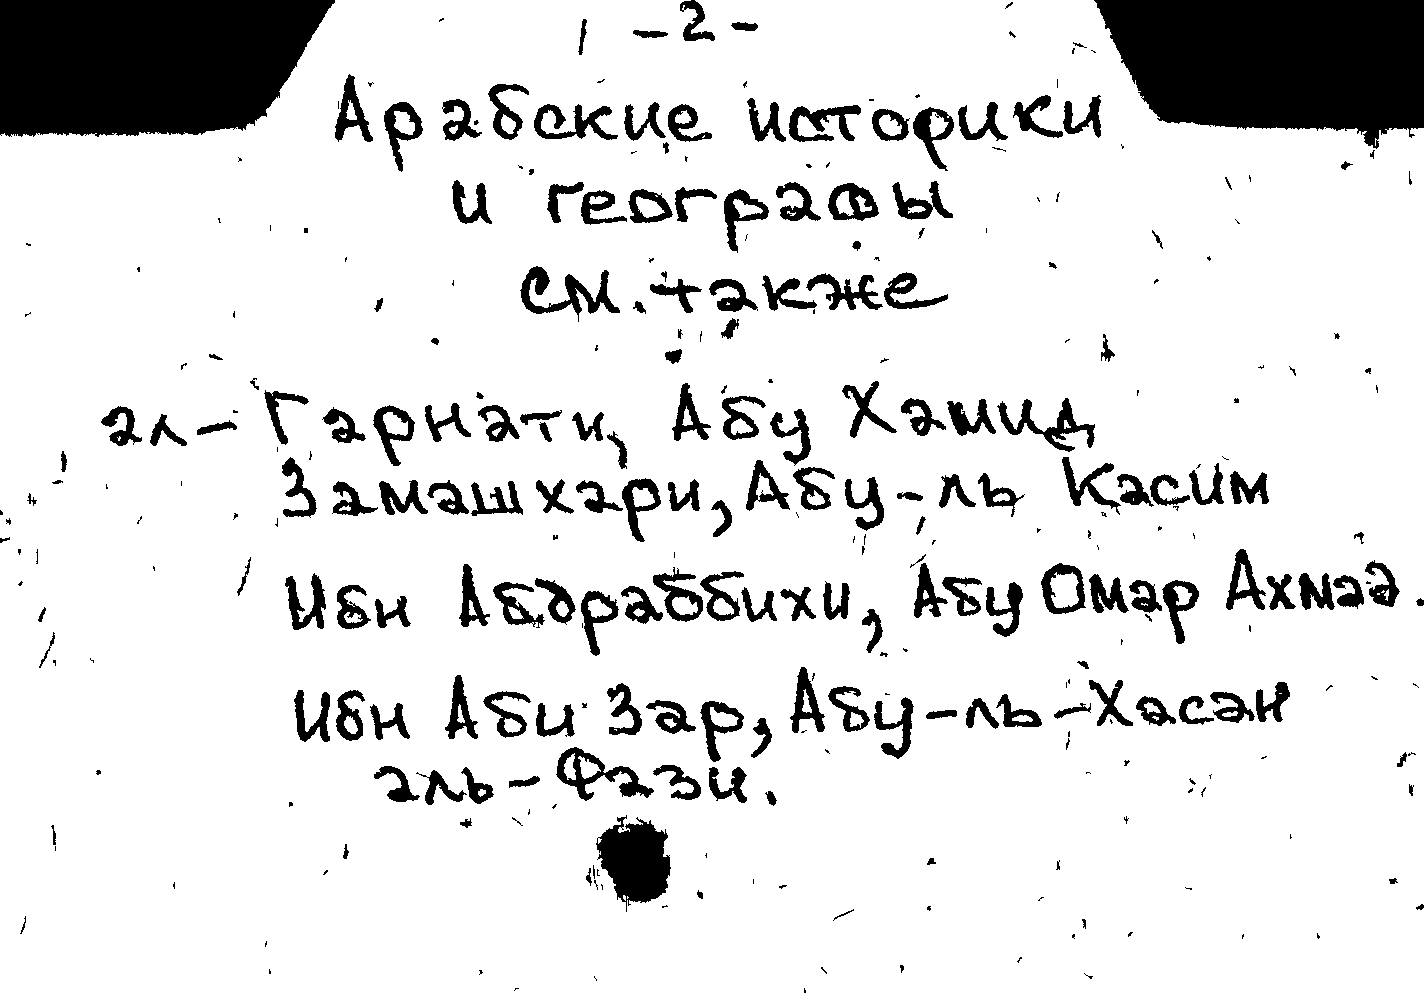 - 2 -
Арабские историки
и географы
см. также
ал-Гарнати, Абу Хамид
Замашхари, Абу-ль Касим
Ибн Абдраббихи, Абу Омар Ахмад.
Ибн Аби Зар, Абу-ль-Хасан
аль-Фази.